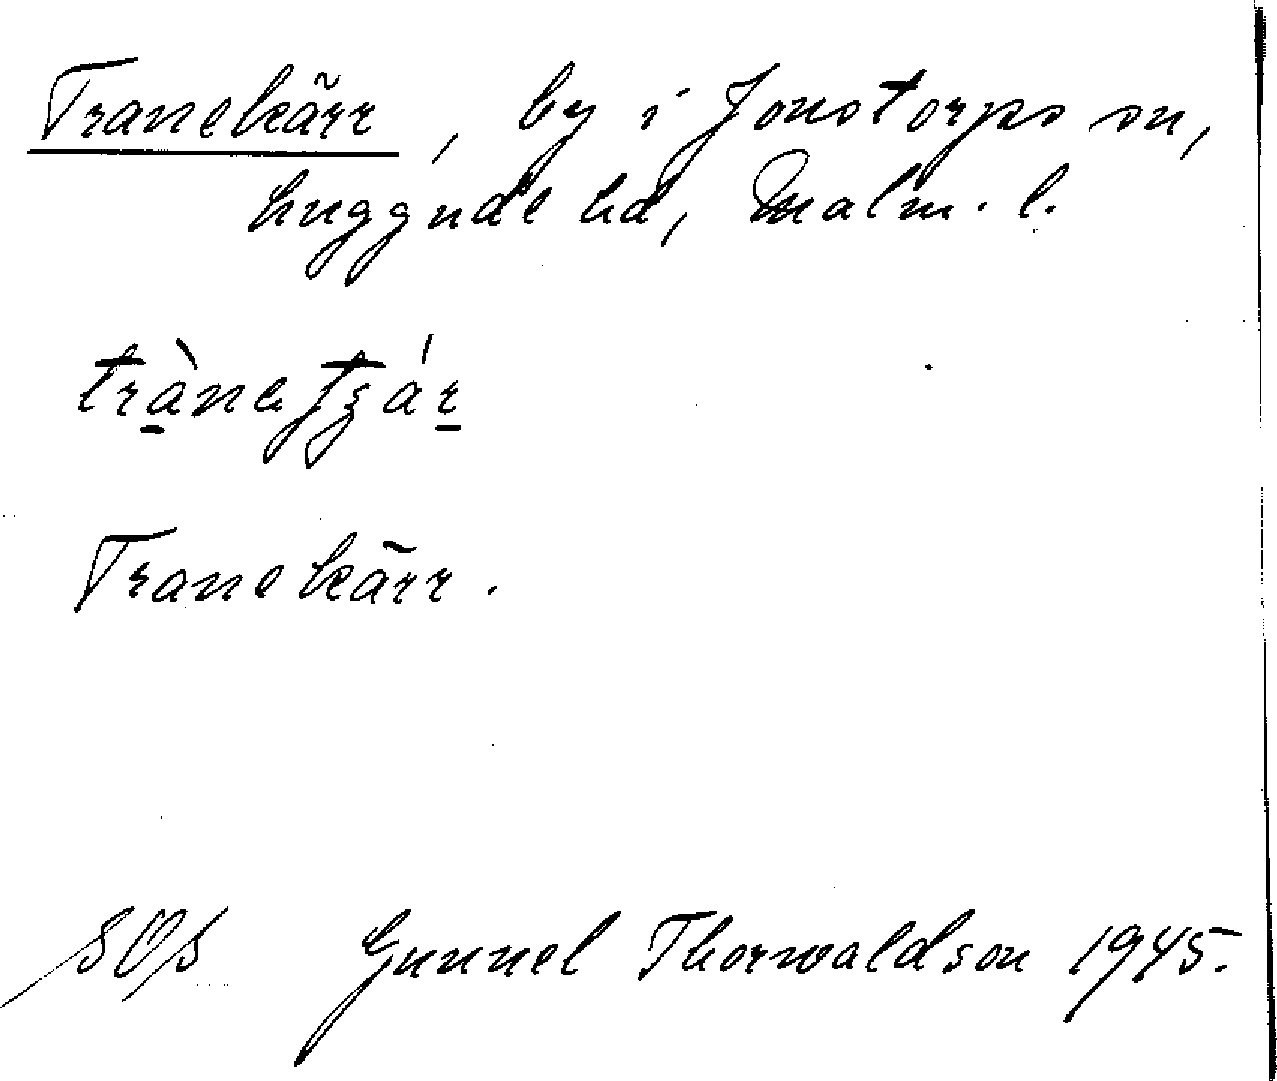 Tranekärr, by i Jonstorps sn,
Luggude hd, Malm. l.
Tranekärr.
SOS Gunnel Thorwaldson 1945.